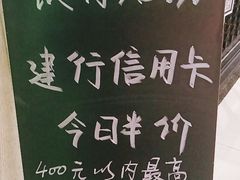 建行信用卡
今日半价
400元以内最高